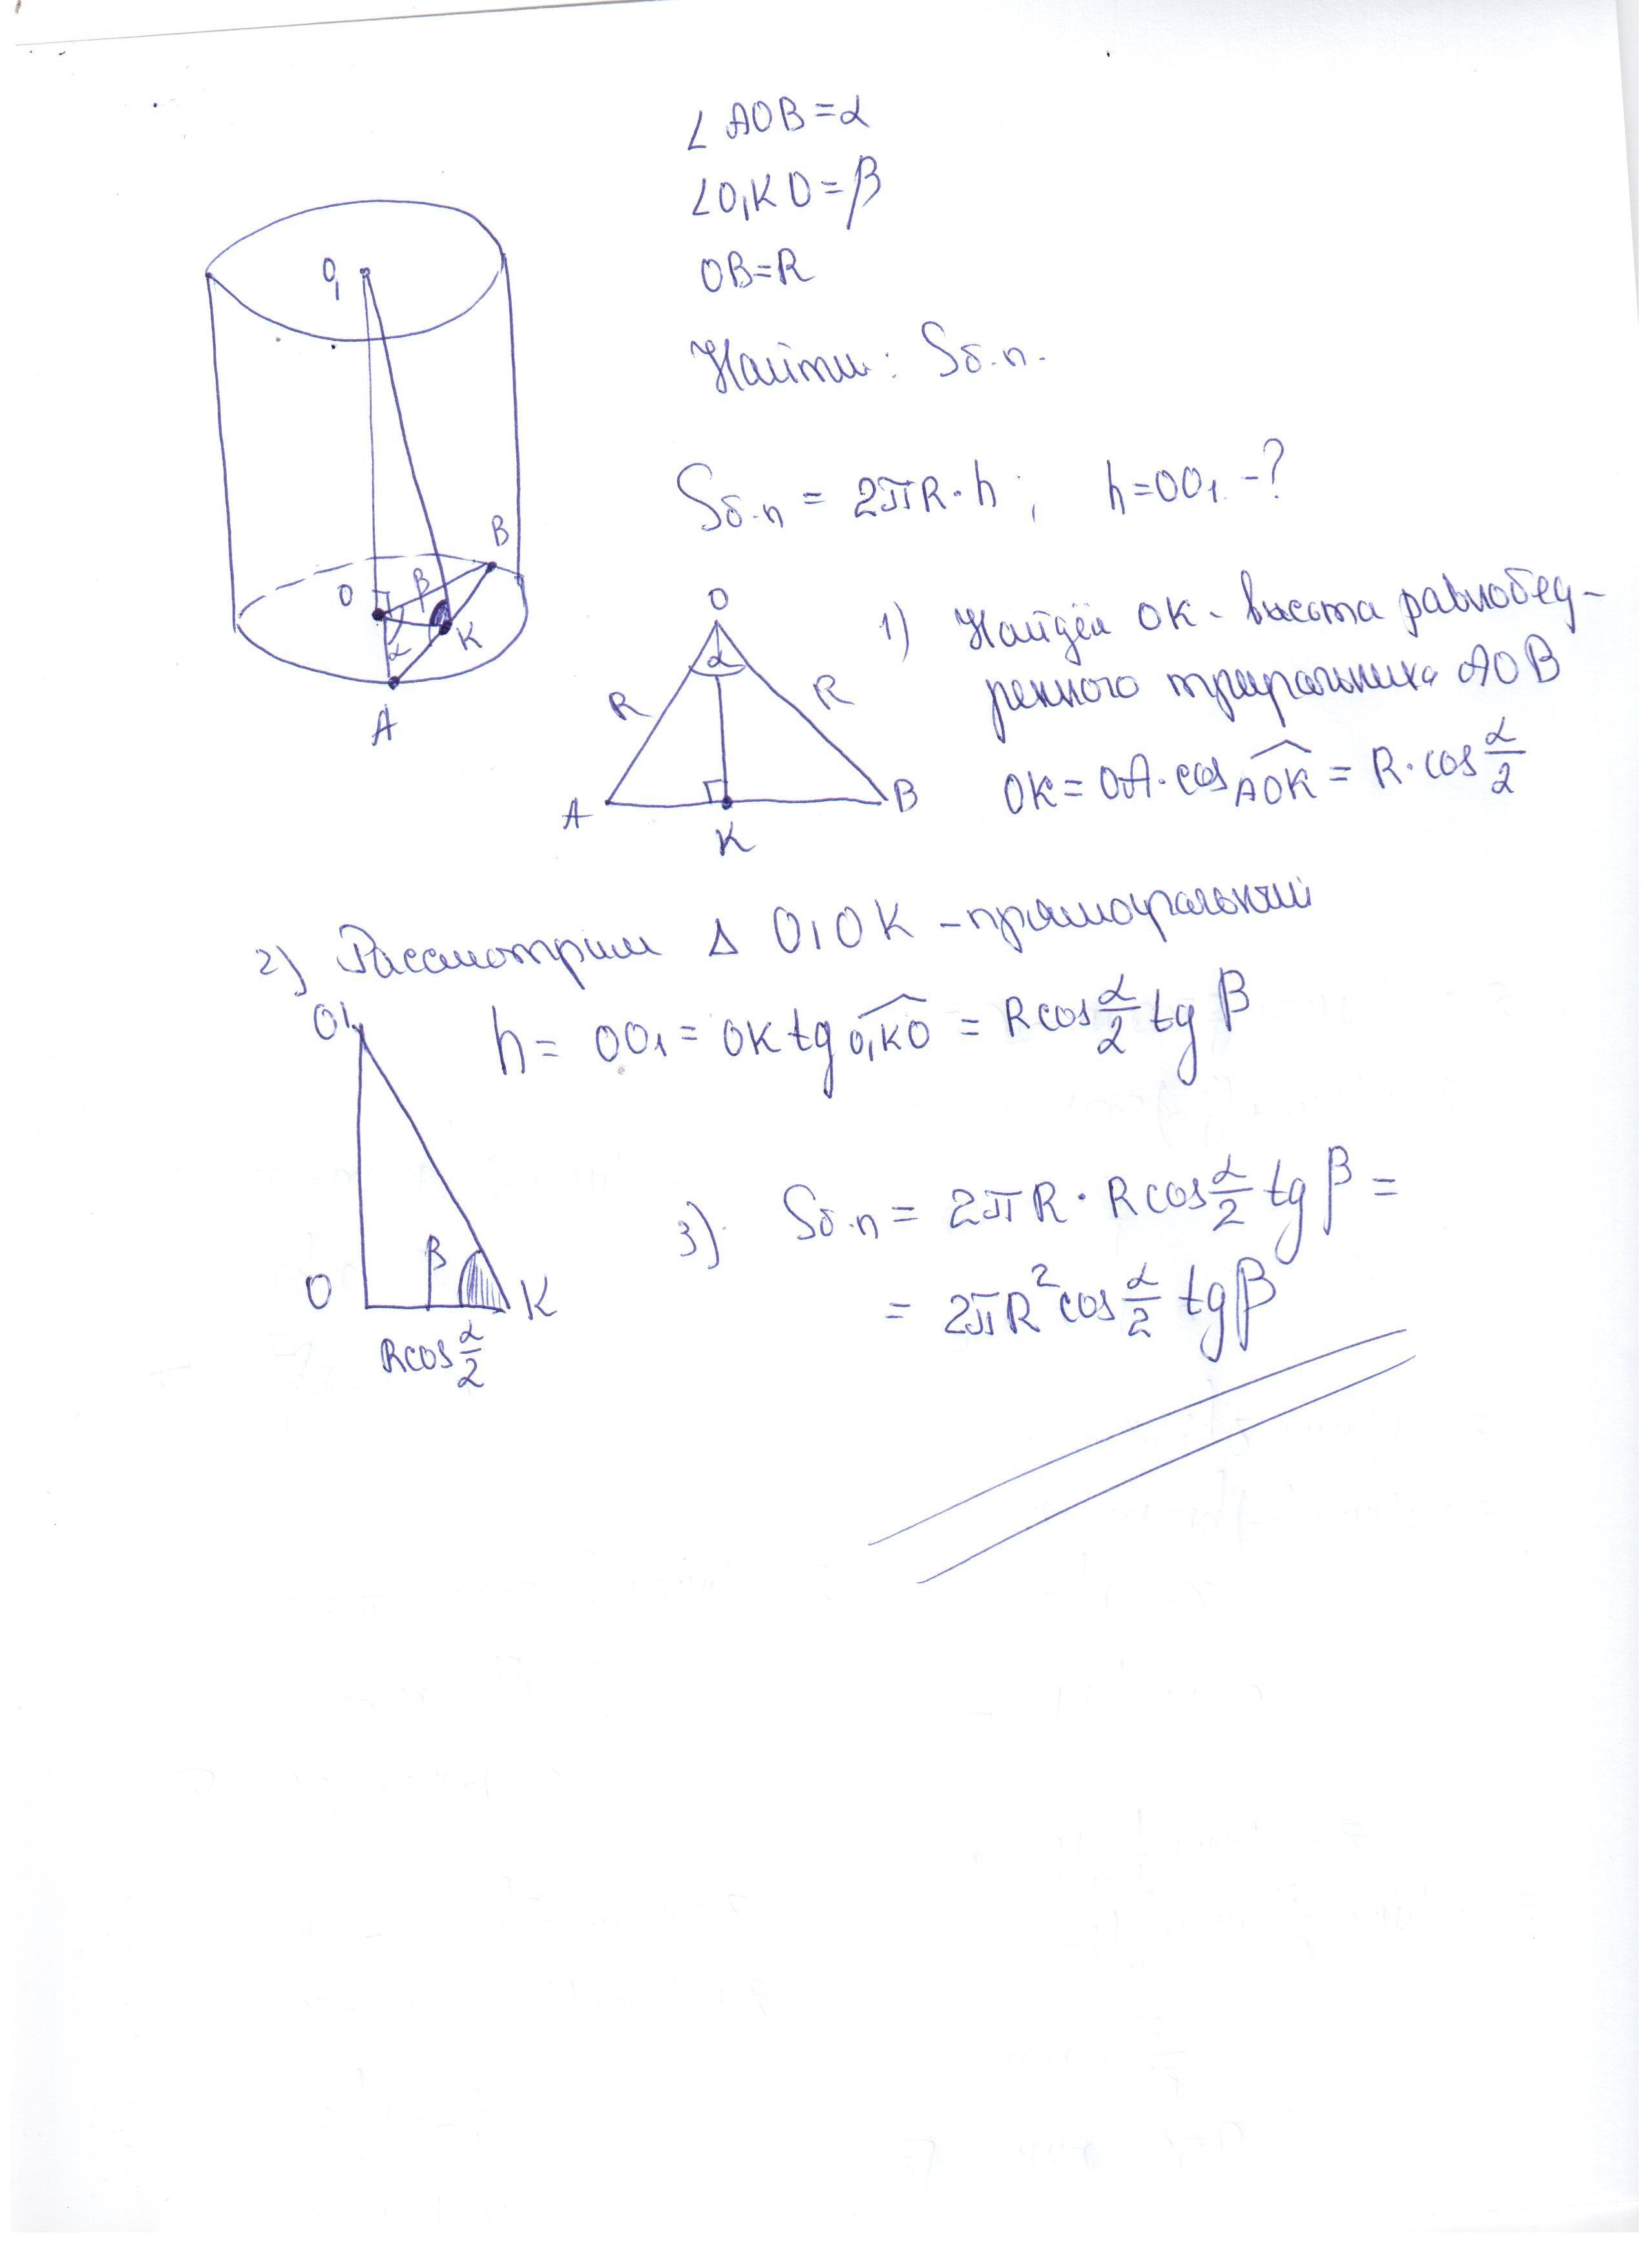 ∠AOB=α
∠O₁KO=β
OB=R
Найти: Sб.п.
Sб.п = 2πR·h ; h=OO₁ -?
O₁
B
O
β
α
K
A
O
α
R
R
A
B
K
1) Найдём OK - высота равнобед-
ренного треугольника AOB
OK = OA·cos AOK = R·cos α/2
2) Рассмотрим Δ O₁OK - прямоугольный
h = OO₁ = OK tg O₁KO = R cos α/2 tg β
O₁
β
O
K
R cos α/2
3) Sб.п = 2πR · R cos α/2 tg β =
= 2πR² cos α/2 tg β